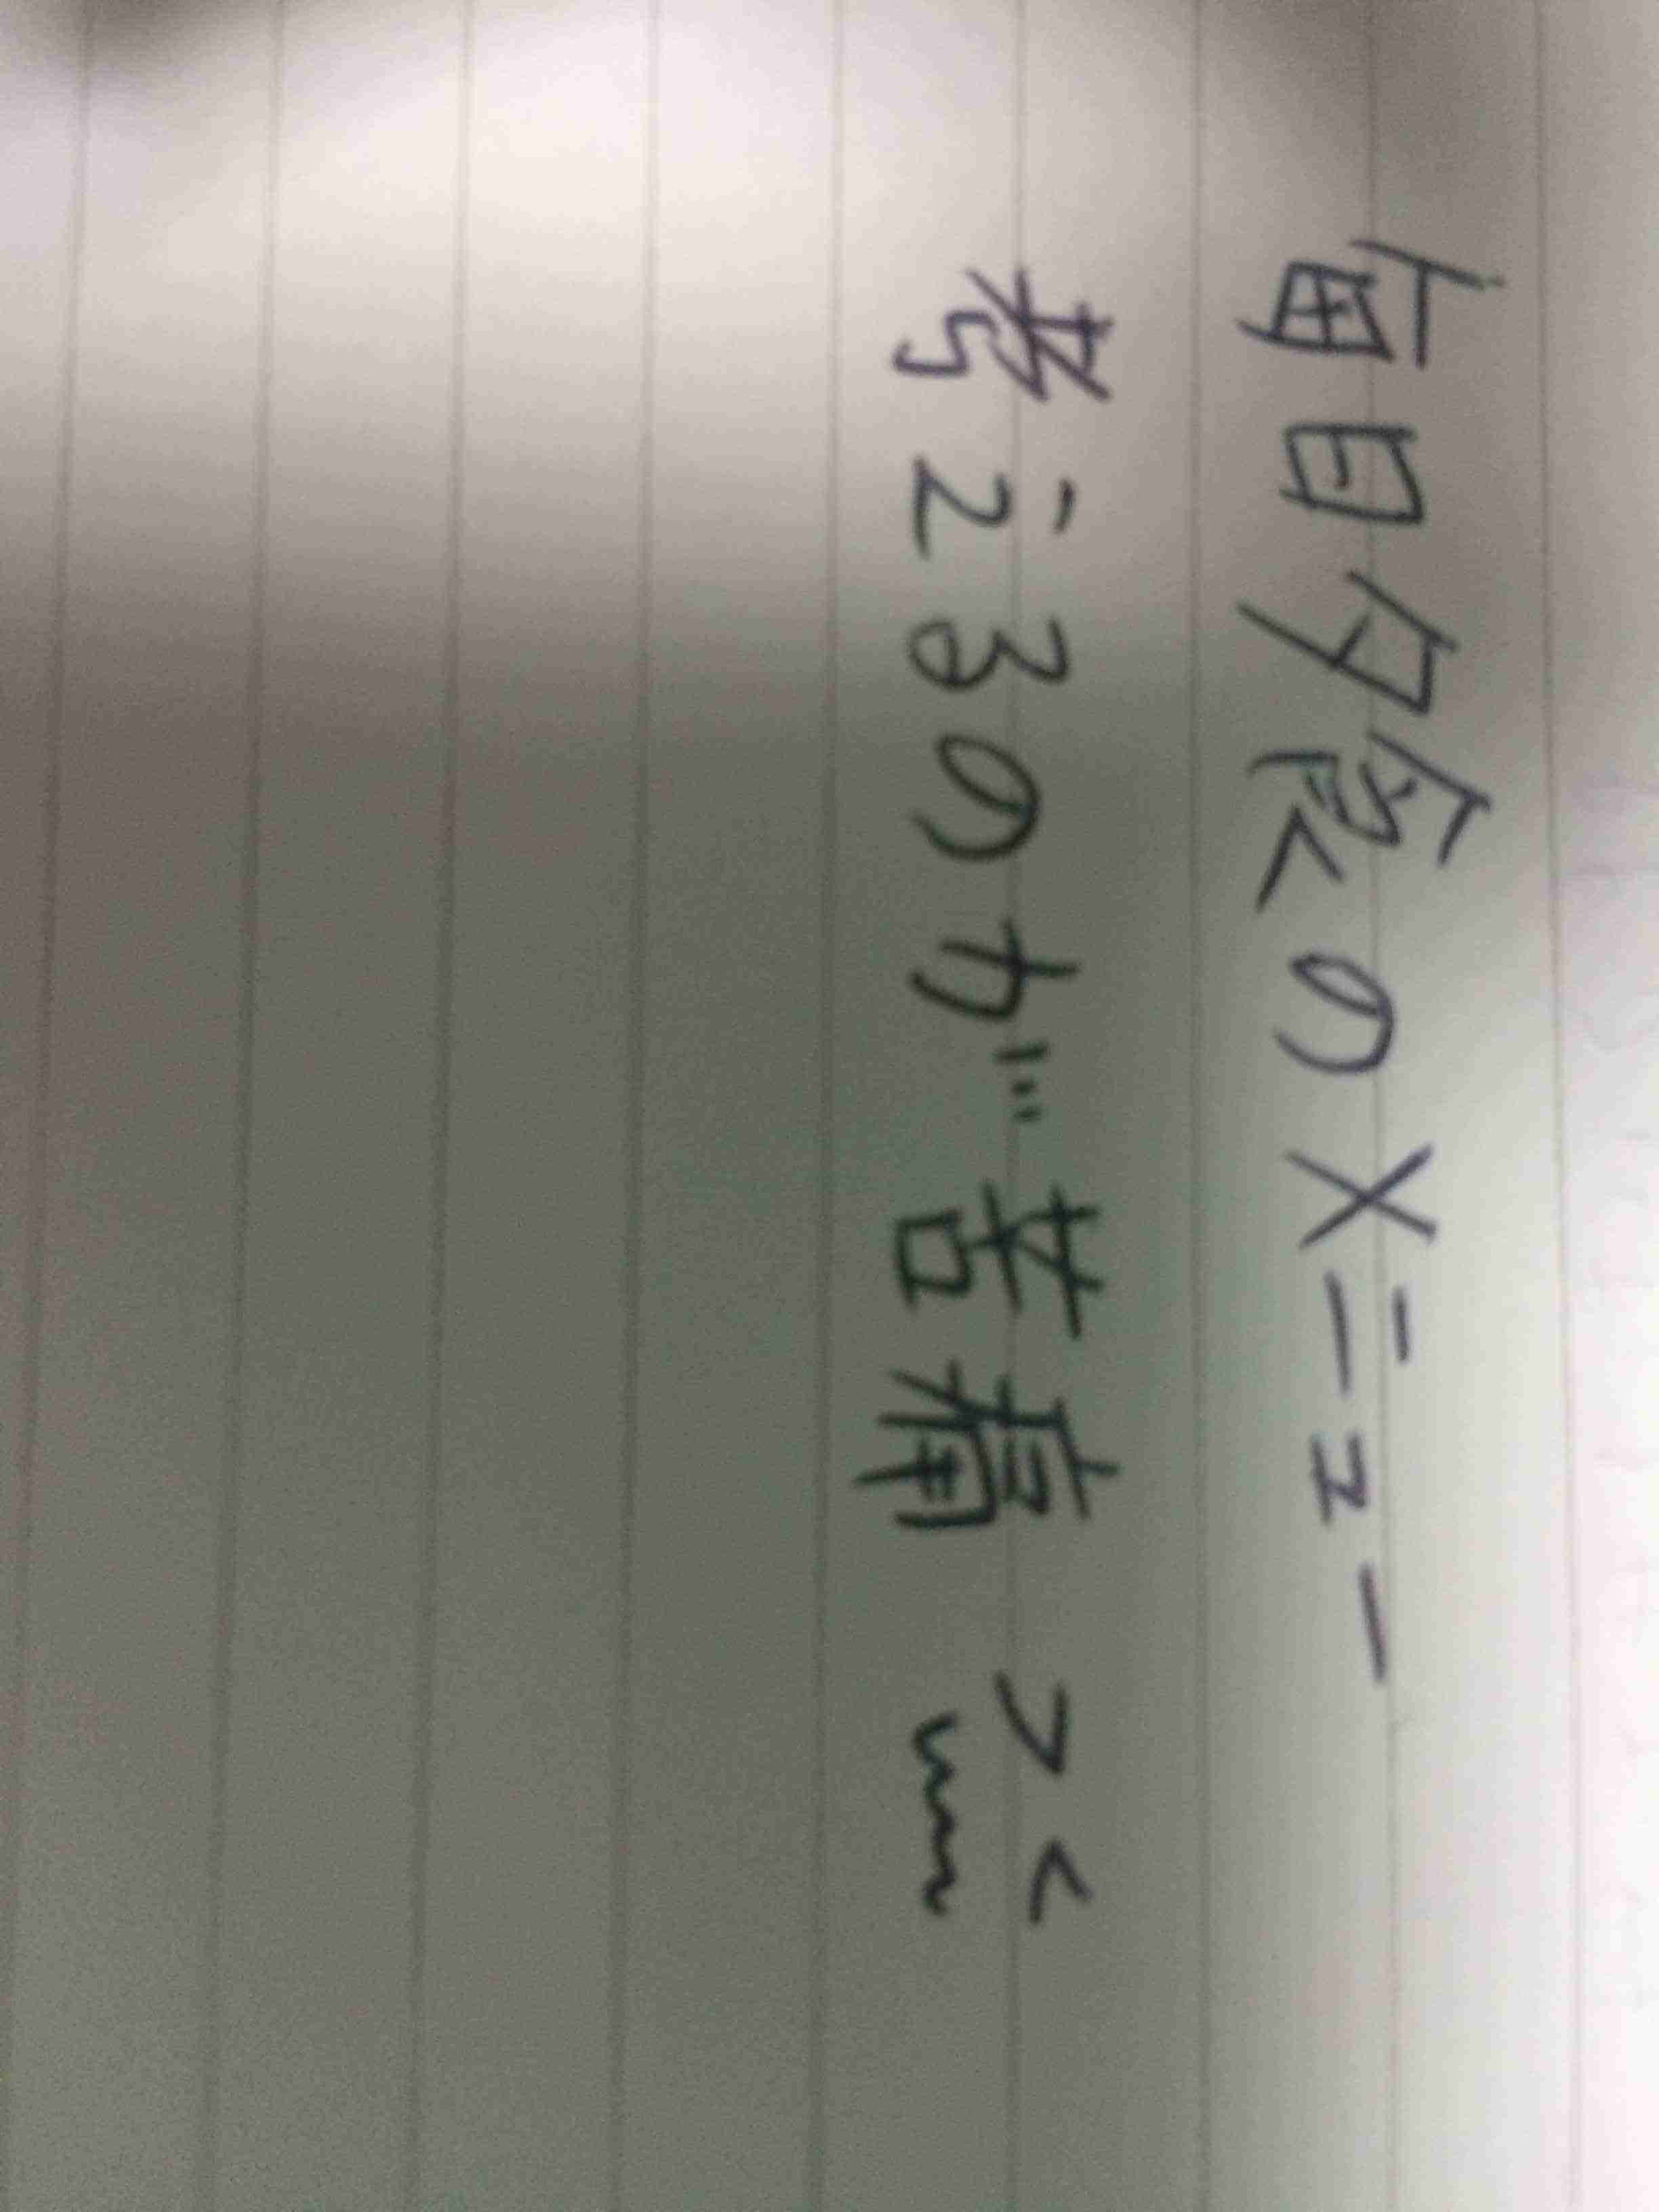 毎日夕食のメニュー
考えるのが苦痛 >﹏<